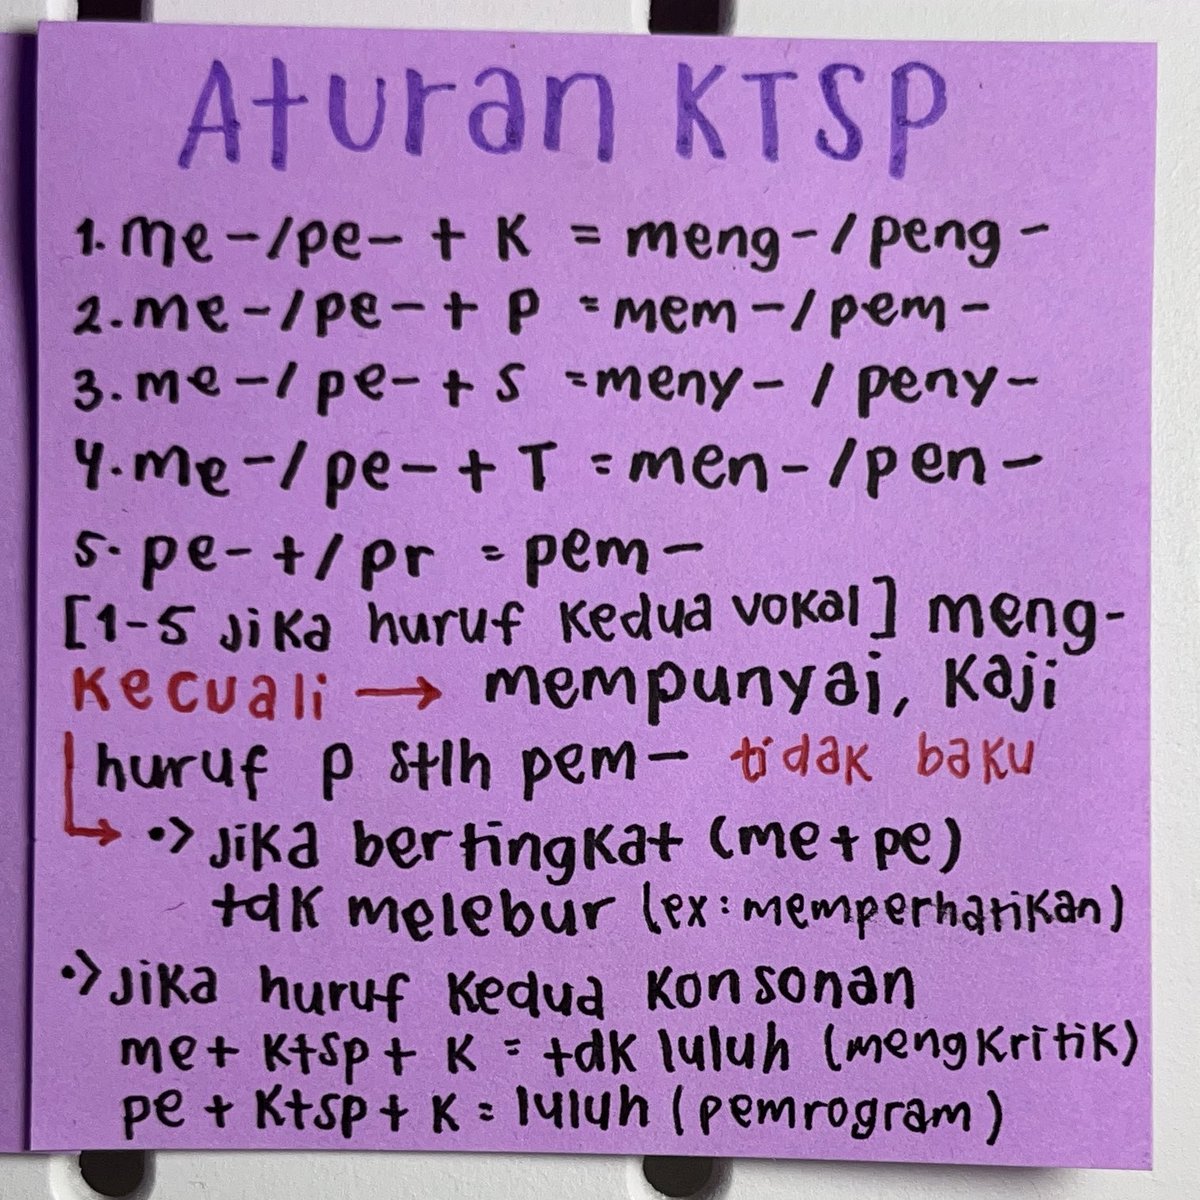 Aturan KTSP
1. me-/pe- + K = meng-/peng-
2. me-/pe- + p = mem-/pem-
3. me-/pe- + s = meny-/peny-
4. me-/pe- + T = men-/pen-
5. pe- +/pr = pem-
[1-5 jika huruf kedua vokal] meng-
kecuali → mempunyai, kaji
huruf p stlh pem- tidak baku
•> jika bertingkat (me+pe)
tdk melebur (ex: memperhatikan)
•> jika huruf kedua konsonan
me+ ktsp + K = tdk luluh (mengkritik)
pe + ktsp + K = luluh (pemrogram)